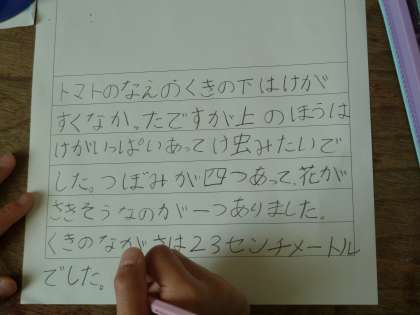 トマトのなえのくきの下はけが
すくなか。たですが上のほうは
けがいっぱいあってけ虫みたいで
した。つぼみが四つあって、花が
さきそうなのが一つありました。
くきのながさは23センチメートル
でした。